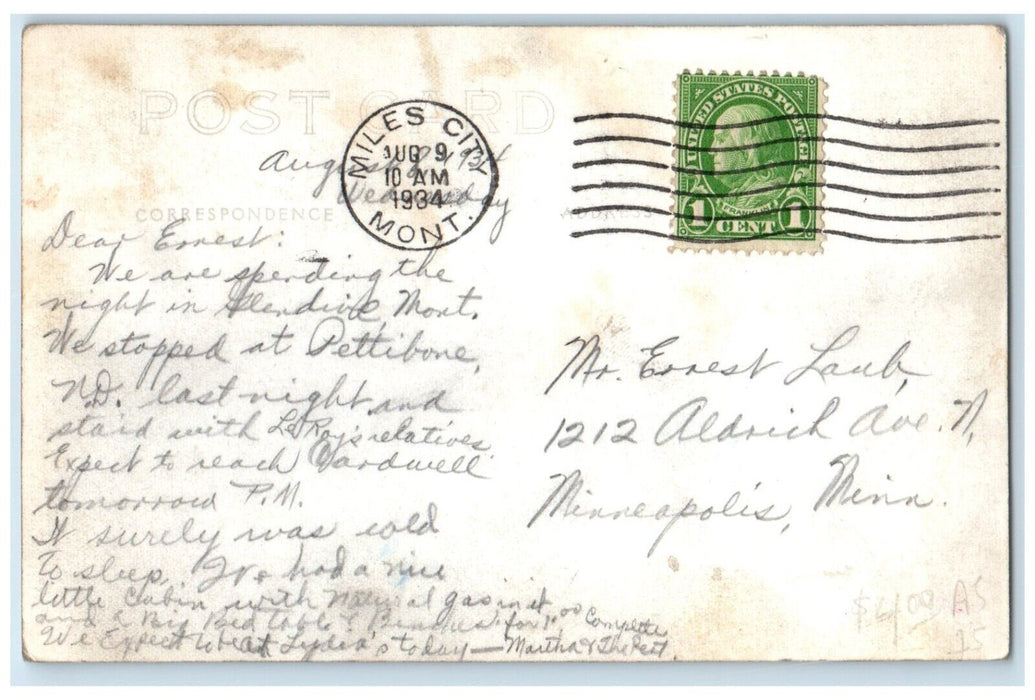 POST CARD
MILES CITY
AUG 9
10 AM
1934
MONT.
UNITED STATES POSTAGE
FRANKLIN
1 CENT 1
August 8, 1934
Wednesday
CORRESPONDENCE
ADDRESS
Dear Ernest:
We are spending the
night in Glendive, Mont.
We stopped at Pettibone,
N.D. last night and
staid with LeRoy's relatives
Expect to reach Cardwell
tomorrow P.M.
It surely was cold
to sleep. We had a nice
little Cabin with Natural gas in it
and a Big Bed table & Benches for 1.00 Complete
We Expect to be at Lydia's today — Martha & The Rest.
Mr. Ernest Laub,
1212 Aldrich Ave. N,
Minneapolis, Minn.
$4.00 AS